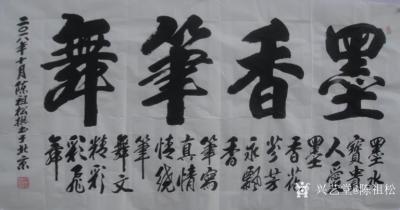 墨香筆舞
墨水
寶貴
人人愛
墨
香花
芬芳
永飄
香
筆寫
真情
情繞
筆
舞文
精彩
彩飛
舞
二〇一八年十月陳祖松撰書于北京
兴艺堂@陈祖松